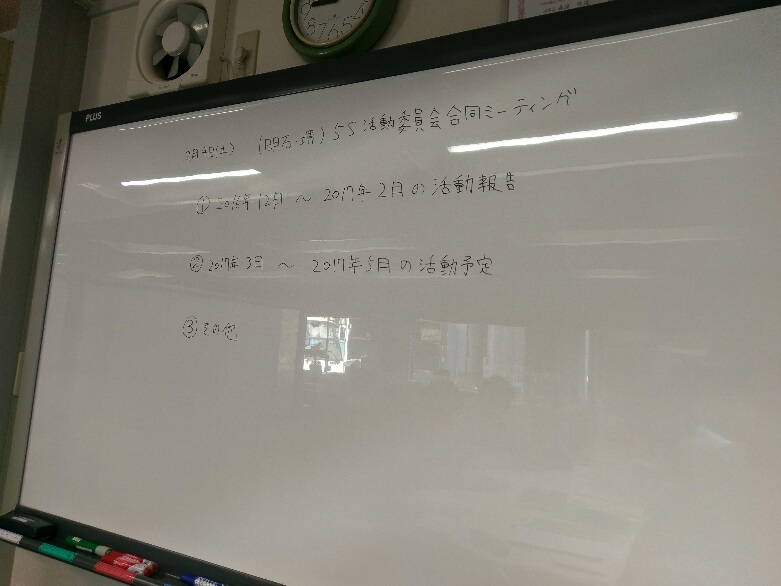 PLUS
8 7 6 5 4
(土) 55活動委員会合同ミーティング
① 2016年12月 ~ 2017年2月の活動報告
② 2017年3月 ~ 2017年5月の活動予定
③ その他